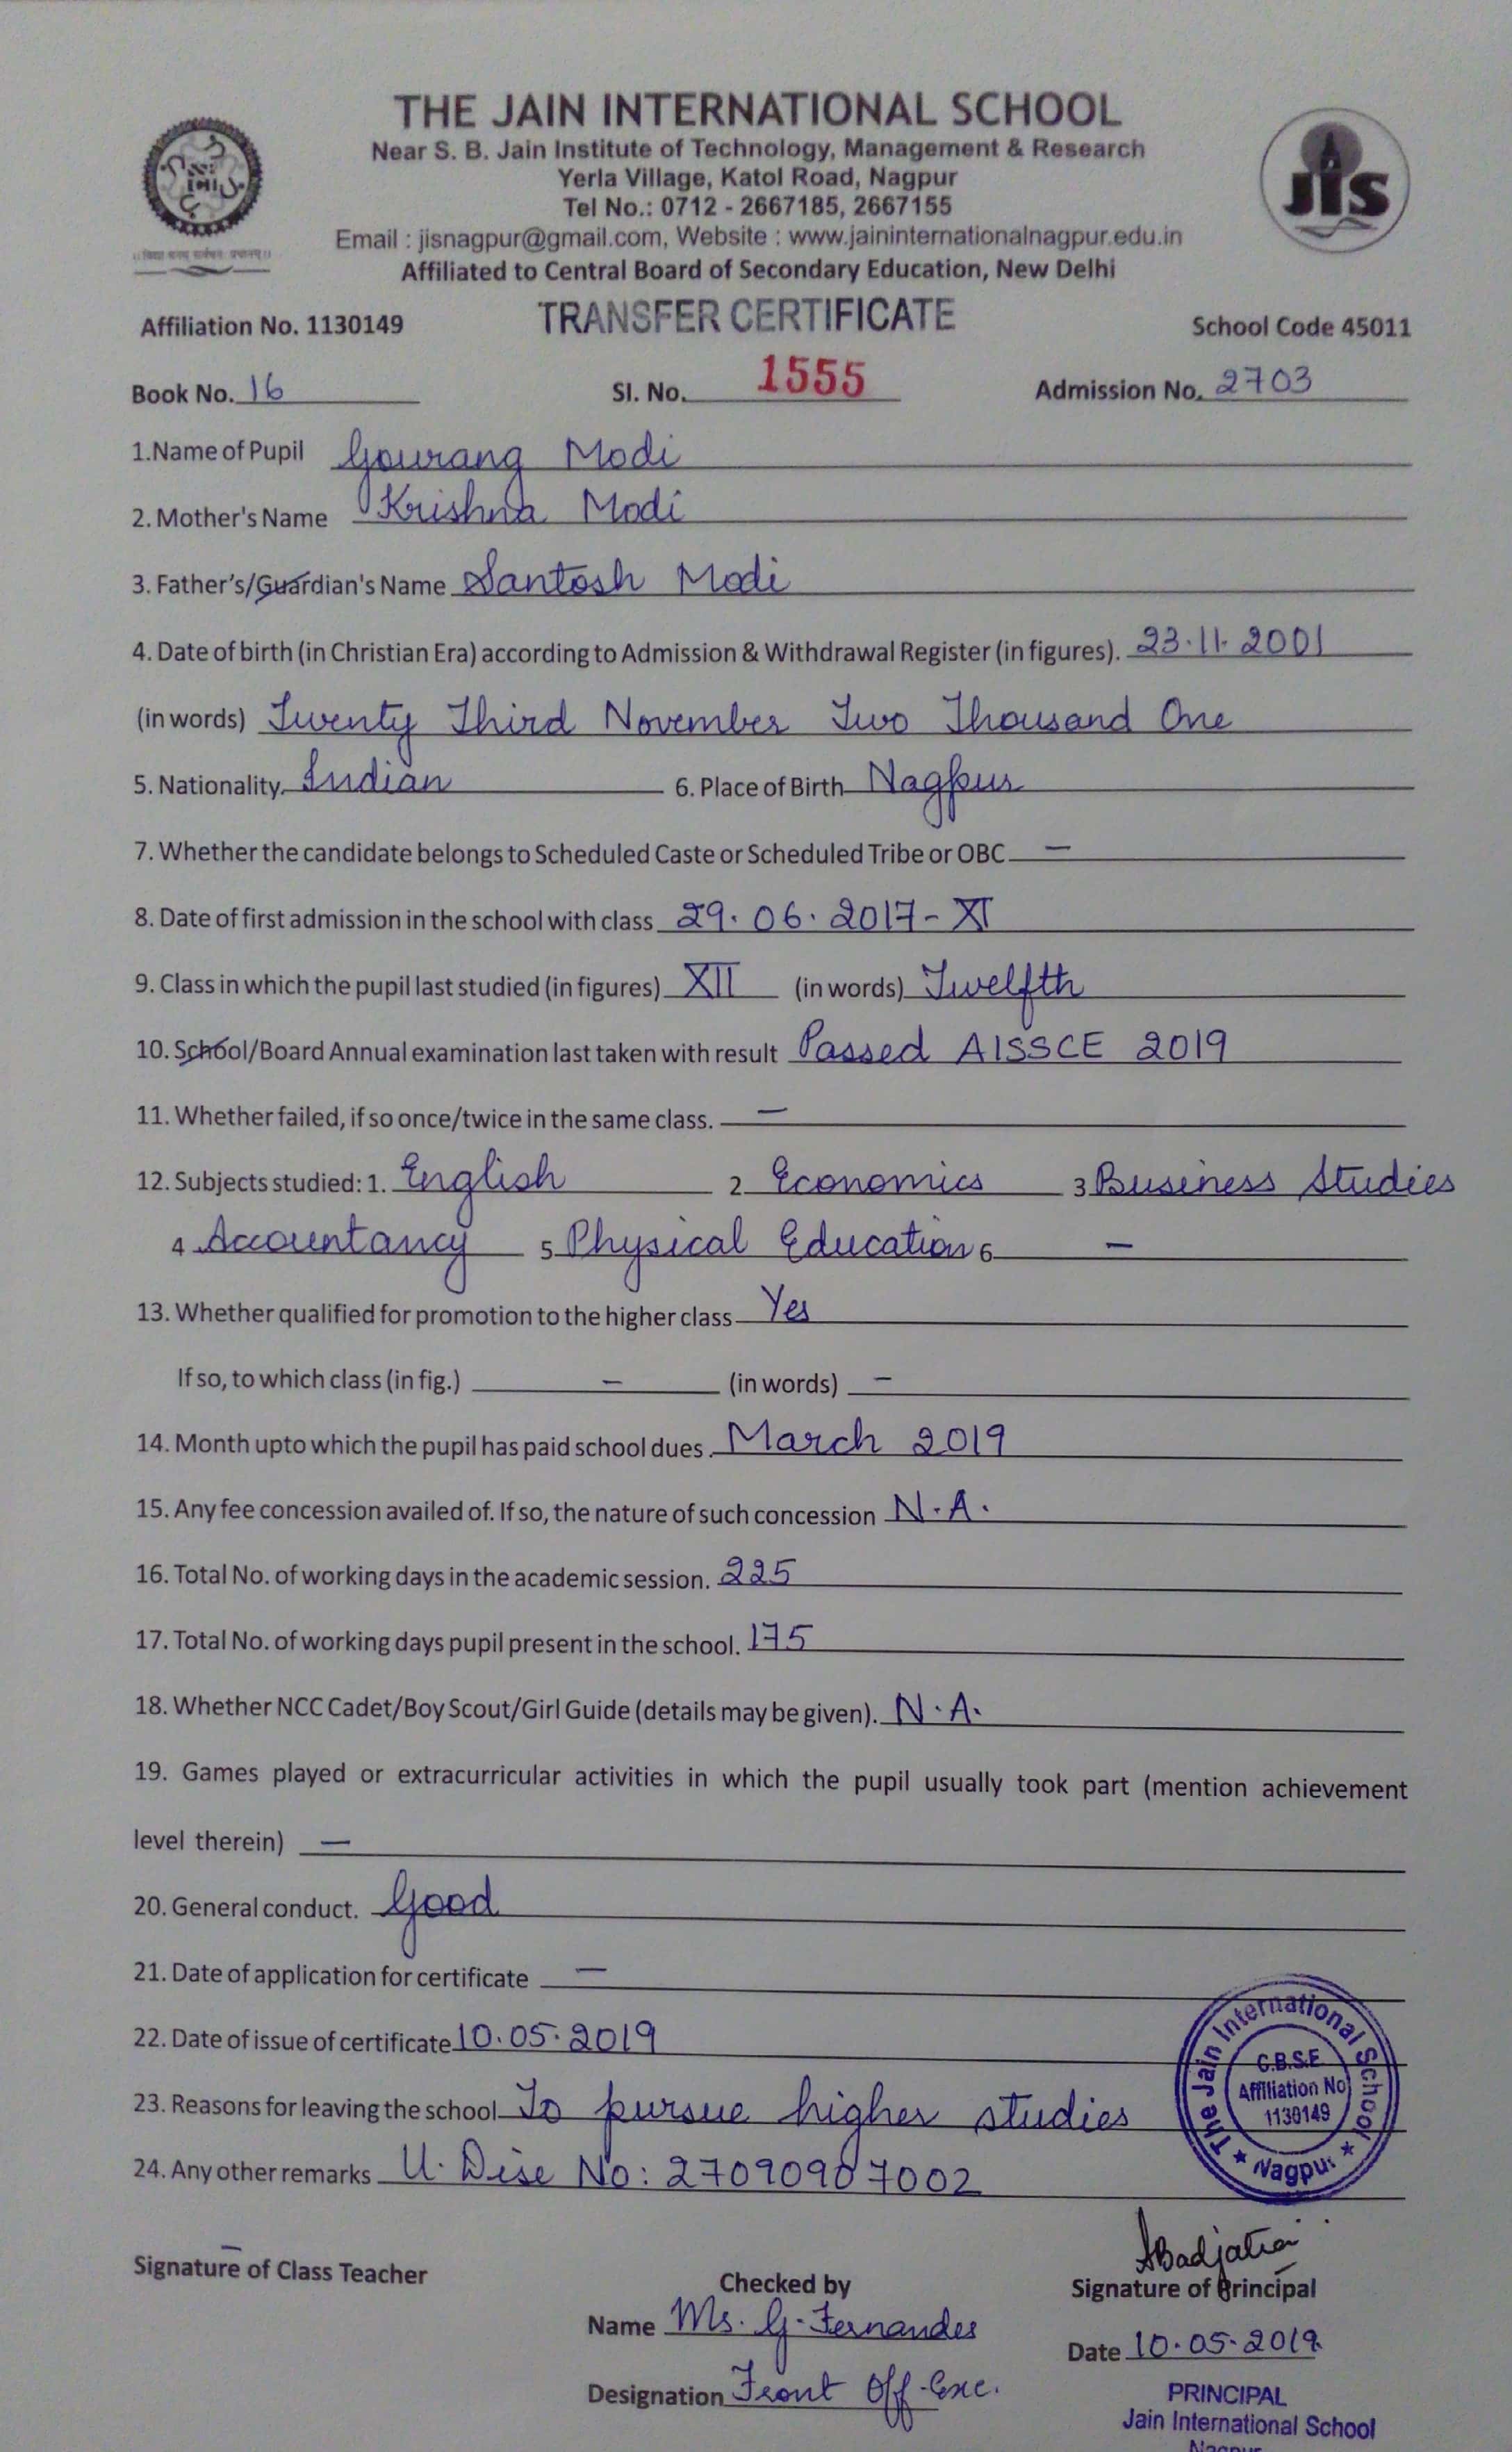 THE JAIN INTERNATIONAL SCHOOL
Near S. B. Jain Institute of Technology, Management & Research
Yerla Village, Katol Road, Nagpur
Tel No.: 0712 - 2667185, 2667155
Email : jisnagpur@gmail.com, Website : www.jaininternationalnagpur.edu.in
Affiliated to Central Board of Secondary Education, New Delhi
JIS
Affiliation No. 1130149 TRANSFER CERTIFICATE School Code 45011
Book No. 16 Sl. No. 1555 Admission No. 2703
1.Name of Pupil Gourang Modi
2. Mother's Name Krishna Modi
3. Father's/Guardian's Name Santosh Modi
4. Date of birth (in Christian Era) according to Admission & Withdrawal Register (in figures). 23.11.2001
(in words) Twenty Third November Two Thousand One
5. Nationality. Indian 6. Place of Birth Nagpur
7. Whether the candidate belongs to Scheduled Caste or Scheduled Tribe or OBC —
8. Date of first admission in the school with class 29.06.2017 - XI
9. Class in which the pupil last studied (in figures) XII (in words) Twelfth
10. School/Board Annual examination last taken with result Passed AISSCE 2019
11. Whether failed, if so once/twice in the same class. —
12. Subjects studied: 1. English 2 Economics 3 Business Studies
4 Accountancy 5 Physical Education 6 —
13. Whether qualified for promotion to the higher class Yes
If so, to which class (in fig.) — (in words) —
14. Month upto which the pupil has paid school dues. March 2019
15. Any fee concession availed of. If so, the nature of such concession N.A.
16. Total No. of working days in the academic session. 225
17. Total No. of working days pupil present in the school. 175
18. Whether NCC Cadet/Boy Scout/Girl Guide (details may be given). N.A.
19. Games played or extracurricular activities in which the pupil usually took part (mention achievement
level therein) —
20. General conduct. Good
21. Date of application for certificate —
22. Date of issue of certificate 10.05.2019
23. Reasons for leaving the school To pursue higher studies
24. Any other remarks U. Dise No: 27090907002
The Jain International School
C.B.S.E
Affiliation No
1130149
★ Nagpur ★
Signature of Class Teacher
Checked by
Signature of Principal
Name Ms. G. Fernandes
Date 10.05.2019
Designation Front Off. Exc.
PRINCIPAL
Jain International School
Nagpur